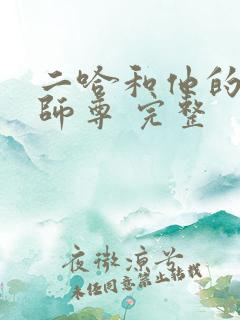 二哈和他的
師尊 完整
夜微涼兮
未经同意禁止转载